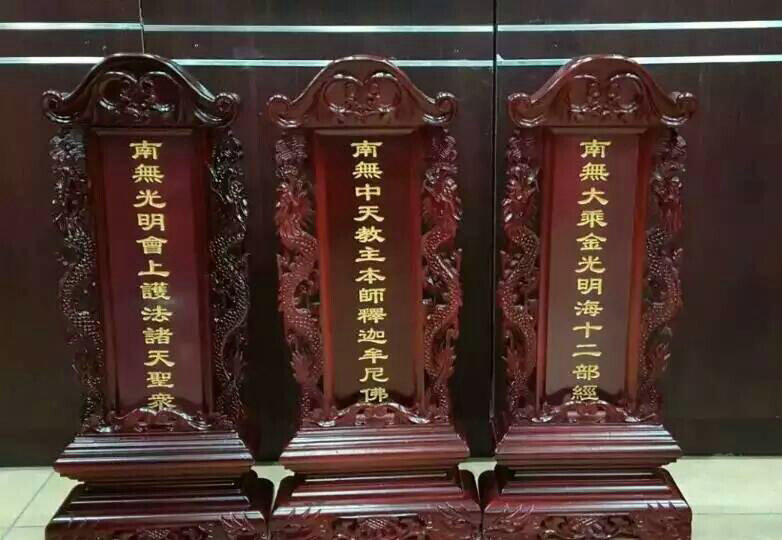 南無光明會上護法諸天聖衆
南無中天教主本師釋迦牟尼佛
南無大乘金光明海十二部經